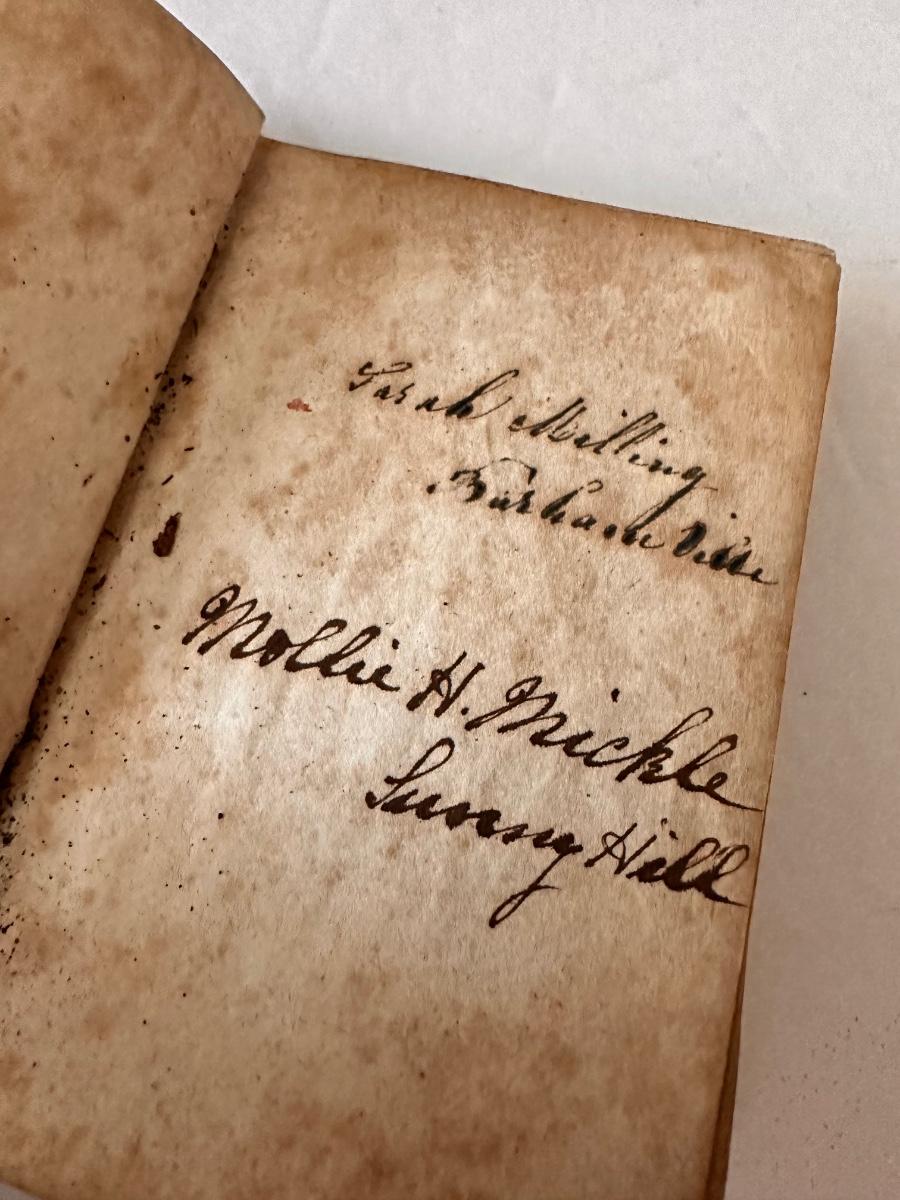 Sarah Milling
Barhamville
Mollie H. Mickle
Sunny Hill